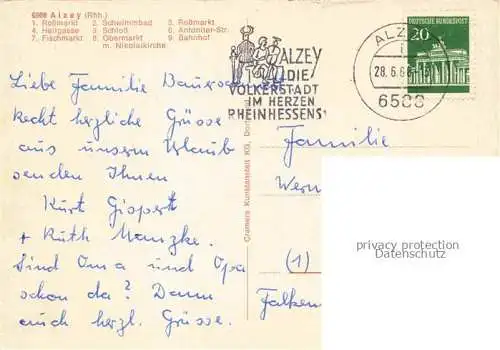 6508 Alzey (Rhh.)
1. Roßmarkt 2. Schwimmbad 3. Roßmarkt
4. Hellgasse 3 Schloß 6. Antoniter-Str.
7. Fischmarkt 8. Obermarkt 9. Bahnhof
m. Nicolaikirche
ALZEY
DIE
VOLKERSTADT
IM HERZEN
RHEINHESSENS
ALZEY
28.6.68
6508
DEUTSCHE BUNDESPOST
20
Liebe Familie
Recht herzliche Grüsse
aus unserm Urlaub
senden Ihnen
Kurt Gispert
+ Ruth Manzke.
Sind Oma und Opa
schon da? Dann
auch herzl. Grüsse.
Cramers Kunstanstalt KG, Dortmund
Familie
Wern
(1)
Falken
privacy protection
Datenschutz